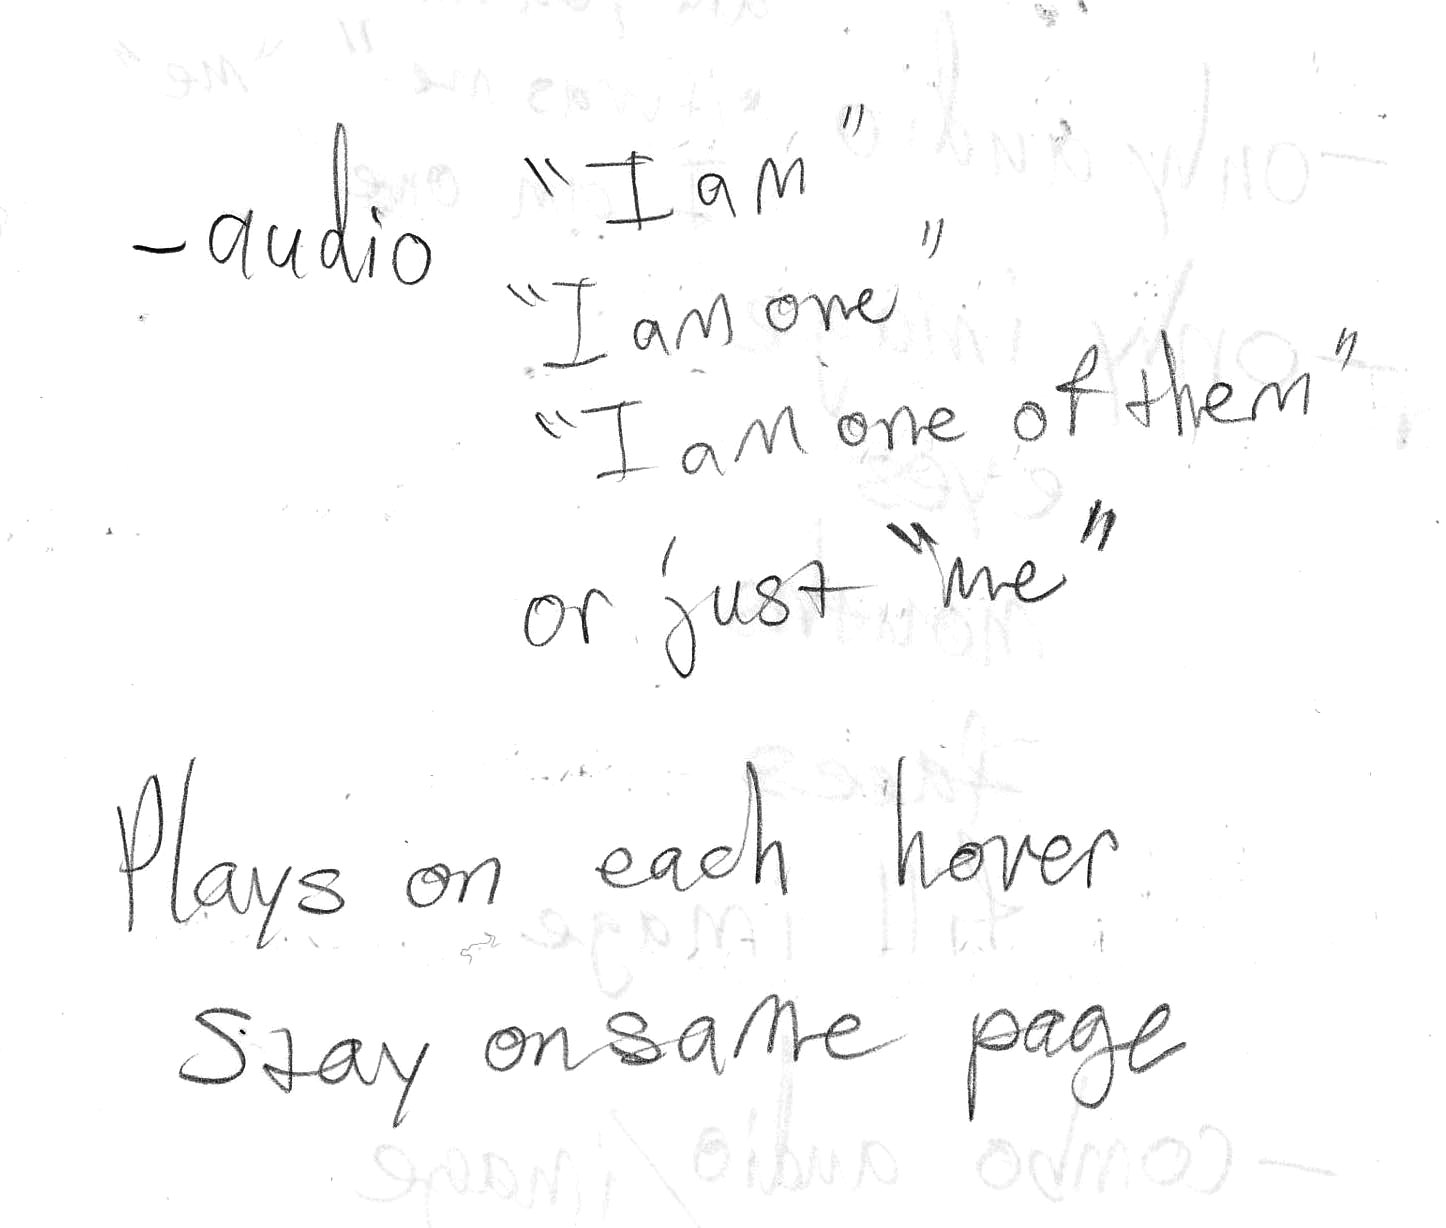 - audio "I am"
"I am one"
"I am one of them"
or just "me"
Plays on each hover
Stay on same page